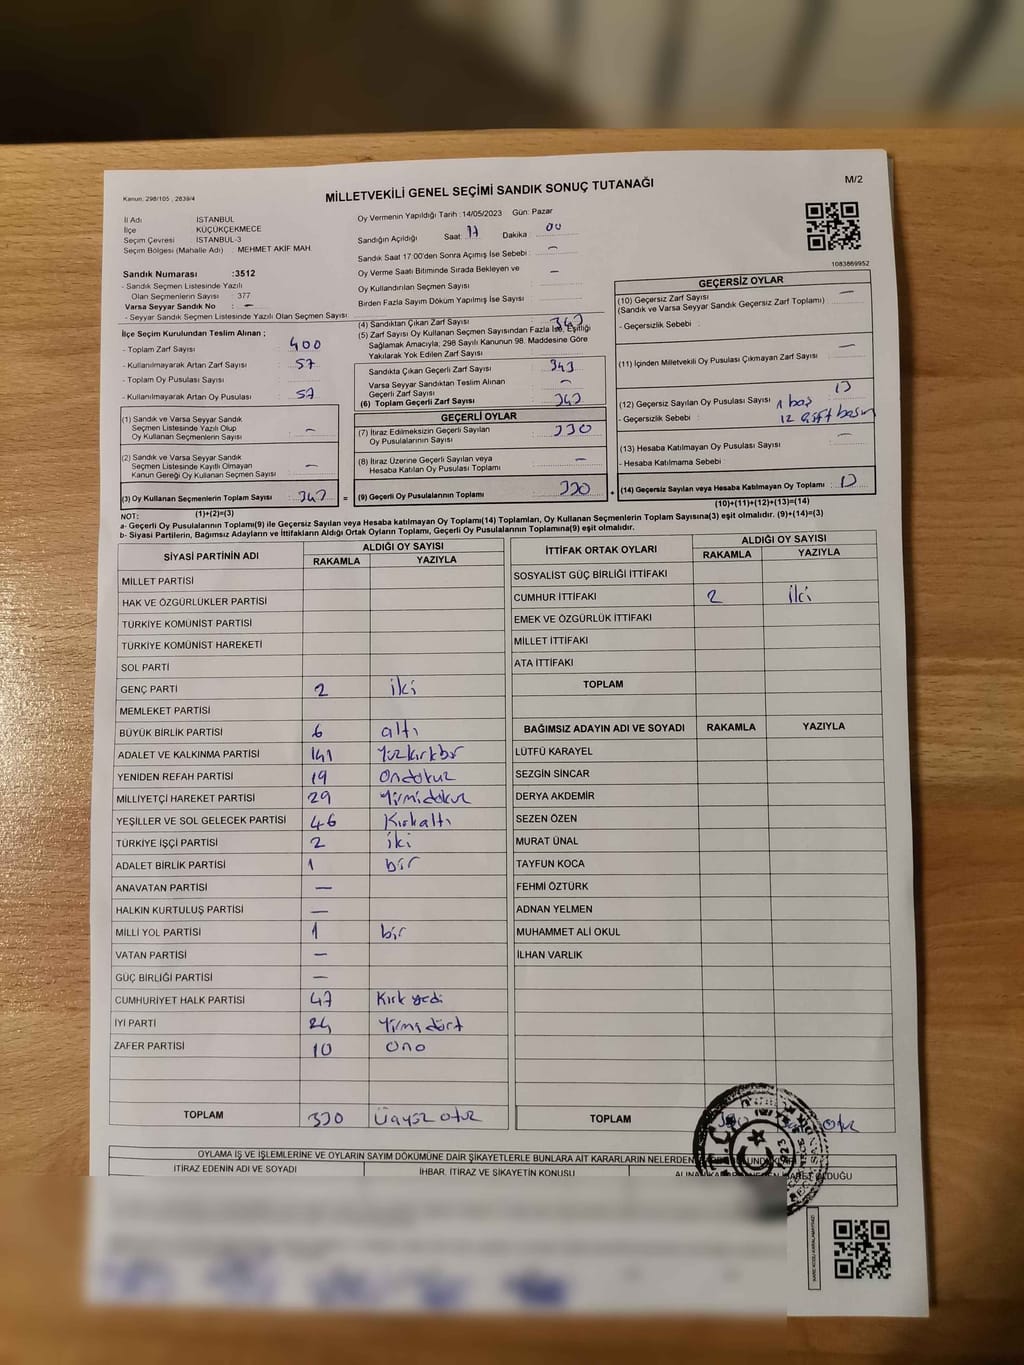 M/2
MİLLETVEKİLİ GENEL SEÇİMİ SANDIK SONUÇ TUTANAĞI
Kanun: 298/105 , 2839/4
İl Adı İSTANBUL
İlçe KÜÇÜKÇEKMECE
Seçim Çevresi İSTANBUL-3
Seçim Bölgesi (Mahalle Adı) : MEHMET AKİF MAH.
Sandık Numarası :3512
- Sandık Seçmen Listesinde Yazılı
Olan Seçmenlerin Sayısı : 377
Varsa Seyyar Sandık No : –
- Seyyar Sandık Seçmen Listesinde Yazılı Olan Seçmen Sayısı :
Oy Vermenin Yapıldığı Tarih :14/05/2023 Gün: Pazar
Sandığın Açıldığı Saat: 17 Dakika : 00
Sandık Saat 17:00'den Sonra Açılmış İse Sebebi : –
Oy Verme Saati Bitiminde Sırada Bekleyen ve
Oy Kullandırılan Seçmen Sayısı : –
Birden Fazla Sayım Döküm Yapılmış İse Sayısı :
1083869952
İlçe Seçim Kurulundan Teslim Alınan ;
- Toplam Zarf Sayısı : 400
- Kullanılmayarak Artan Zarf Sayısı : 57
- Toplam Oy Pusulası Sayısı :
- Kullanılmayarak Artan Oy Pusulası : 57
(1) Sandık ve Varsa Seyyar Sandık
Seçmen Listesinde Yazılı Olup
Oy Kullanan Seçmenlerin Sayısı : –
(2) Sandık ve Varsa Seyyar Sandık
Seçmen Listesinde Kayıtlı Olmayan
Kanun Gereği Oy Kullanan Seçmen Sayısı : –
(3) Oy Kullanan Seçmenlerin Toplam Sayısı : 343 =
(1)+(2)=(3)
(4) Sandıktan Çıkan Zarf Sayısı : 343
(5) Zarf Sayısı Oy Kullanan Seçmen Sayısından Fazla İse, Eşitliği
Sağlamak Amacıyla; 298 Sayılı Kanunun 98. Maddesine Göre
Yakılarak Yok Edilen Zarf Sayısı :
Sandıkta Çıkan Geçerli Zarf Sayısı : 343
Varsa Seyyar Sandıktan Teslim Alınan
Geçerli Zarf Sayısı : –
(6) Toplam Geçerli Zarf Sayısı : 343
GEÇERLİ OYLAR
(7) İtiraz Edilmeksizin Geçerli Sayılan
Oy Pusulalarının Sayısı : 330
(8) İtiraz Üzerine Geçerli Sayılan veya
Hesaba Katılan Oy Pusulası Toplamı : –
(9) Geçerli Oy Pusulalarının Toplamı : 330 +
GEÇERSİZ OYLAR
(10) Geçersiz Zarf Sayısı : –
(Sandık ve Varsa Seyyar Sandık Geçersiz Zarf Toplamı)
- Geçersizlik Sebebi :
(11) İçinden Milletvekili Oy Pusulası Çıkmayan Zarf Sayısı : –
(12) Geçersiz Sayılan Oy Pusulası Sayısı : 13
- Geçersizlik Sebebi : 1 boş
12 çift basım
(13) Hesaba Katılmayan Oy Pusulası Sayısı : –
- Hesaba Katılmama Sebebi :
(14) Geçersiz Sayılan veya Hesaba Katılmayan Oy Toplamı : 13
(10)+(11)+(12)+(13)=(14)
NOT:
a- Geçerli Oy Pusulalarının Toplamı(9) ile Geçersiz Sayılan veya Hesaba katılmayan Oy Toplamı(14) Toplamları, Oy Kullanan Seçmenlerin Toplam Sayısına(3) eşit olmalıdır. (9)+(14)=(3)
b- Siyasi Partilerin, Bağımsız Adayların ve İttifakların Aldığı Ortak Oyların Toplamı, Geçerli Oy Pusulalarının Toplamına(9) eşit olmalıdır.
SİYASİ PARTİNİN ADI ALDIĞI OY SAYISI
RAKAMLA YAZIYLA
MİLLET PARTİSİ
HAK VE ÖZGÜRLÜKLER PARTİSİ
TÜRKİYE KOMÜNİST PARTİSİ
TÜRKİYE KOMÜNİST HAREKETİ
SOL PARTİ
GENÇ PARTİ 2 iki
MEMLEKET PARTİSİ
BÜYÜK BİRLİK PARTİSİ 6 altı
ADALET VE KALKINMA PARTİSİ 141 Yüzkırkbir
YENİDEN REFAH PARTİSİ 19 Ondokuz
MİLLİYETÇİ HAREKET PARTİSİ 29 Yirmidokuz
YEŞİLLER VE SOL GELECEK PARTİSİ 46 Kırkaltı
TÜRKİYE İŞÇİ PARTİSİ 2 iki
ADALET BİRLİK PARTİSİ 1 bir
ANAVATAN PARTİSİ –
HALKIN KURTULUŞ PARTİSİ –
MİLLİ YOL PARTİSİ 1 bir
VATAN PARTİSİ –
GÜÇ BİRLİĞİ PARTİSİ –
CUMHURİYET HALK PARTİSİ 47 Kırk yedi
İYİ PARTİ 24 Yirmi dört
ZAFER PARTİSİ 10 Ono
TOPLAM 330 Üçyüz otuz
İTTİFAK ORTAK OYLARI ALDIĞI OY SAYISI
RAKAMLA YAZIYLA
SOSYALİST GÜÇ BİRLİĞİ İTTİFAKI
CUMHUR İTTİFAKI 2 iki
EMEK VE ÖZGÜRLÜK İTTİFAKI
MİLLET İTTİFAKI
ATA İTTİFAKI
TOPLAM
BAĞIMSIZ ADAYIN ADI VE SOYADI RAKAMLA YAZIYLA
LÜTFÜ KARAYEL
SEZGİN SİNCAR
DERYA AKDEMİR
SEZEN ÖZEN
MURAT ÜNAL
TAYFUN KOCA
FEHMİ ÖZTÜRK
ADNAN YELMEN
MUHAMMET ALİ OKUL
İLHAN VARLIK
TOPLAM 330 otuz
OYLAMA İŞ VE İŞLEMLERİNE VE OYLARIN SAYIM DÖKÜMÜNE DAİR ŞİKAYETLERLE BUNLARA AİT KARARLARIN NELERDEN
İTİRAZ EDENİN ADI VE SOYADI İHBAR, İTİRAZ VE ŞİKAYETİN KONUSU OLDUĞU